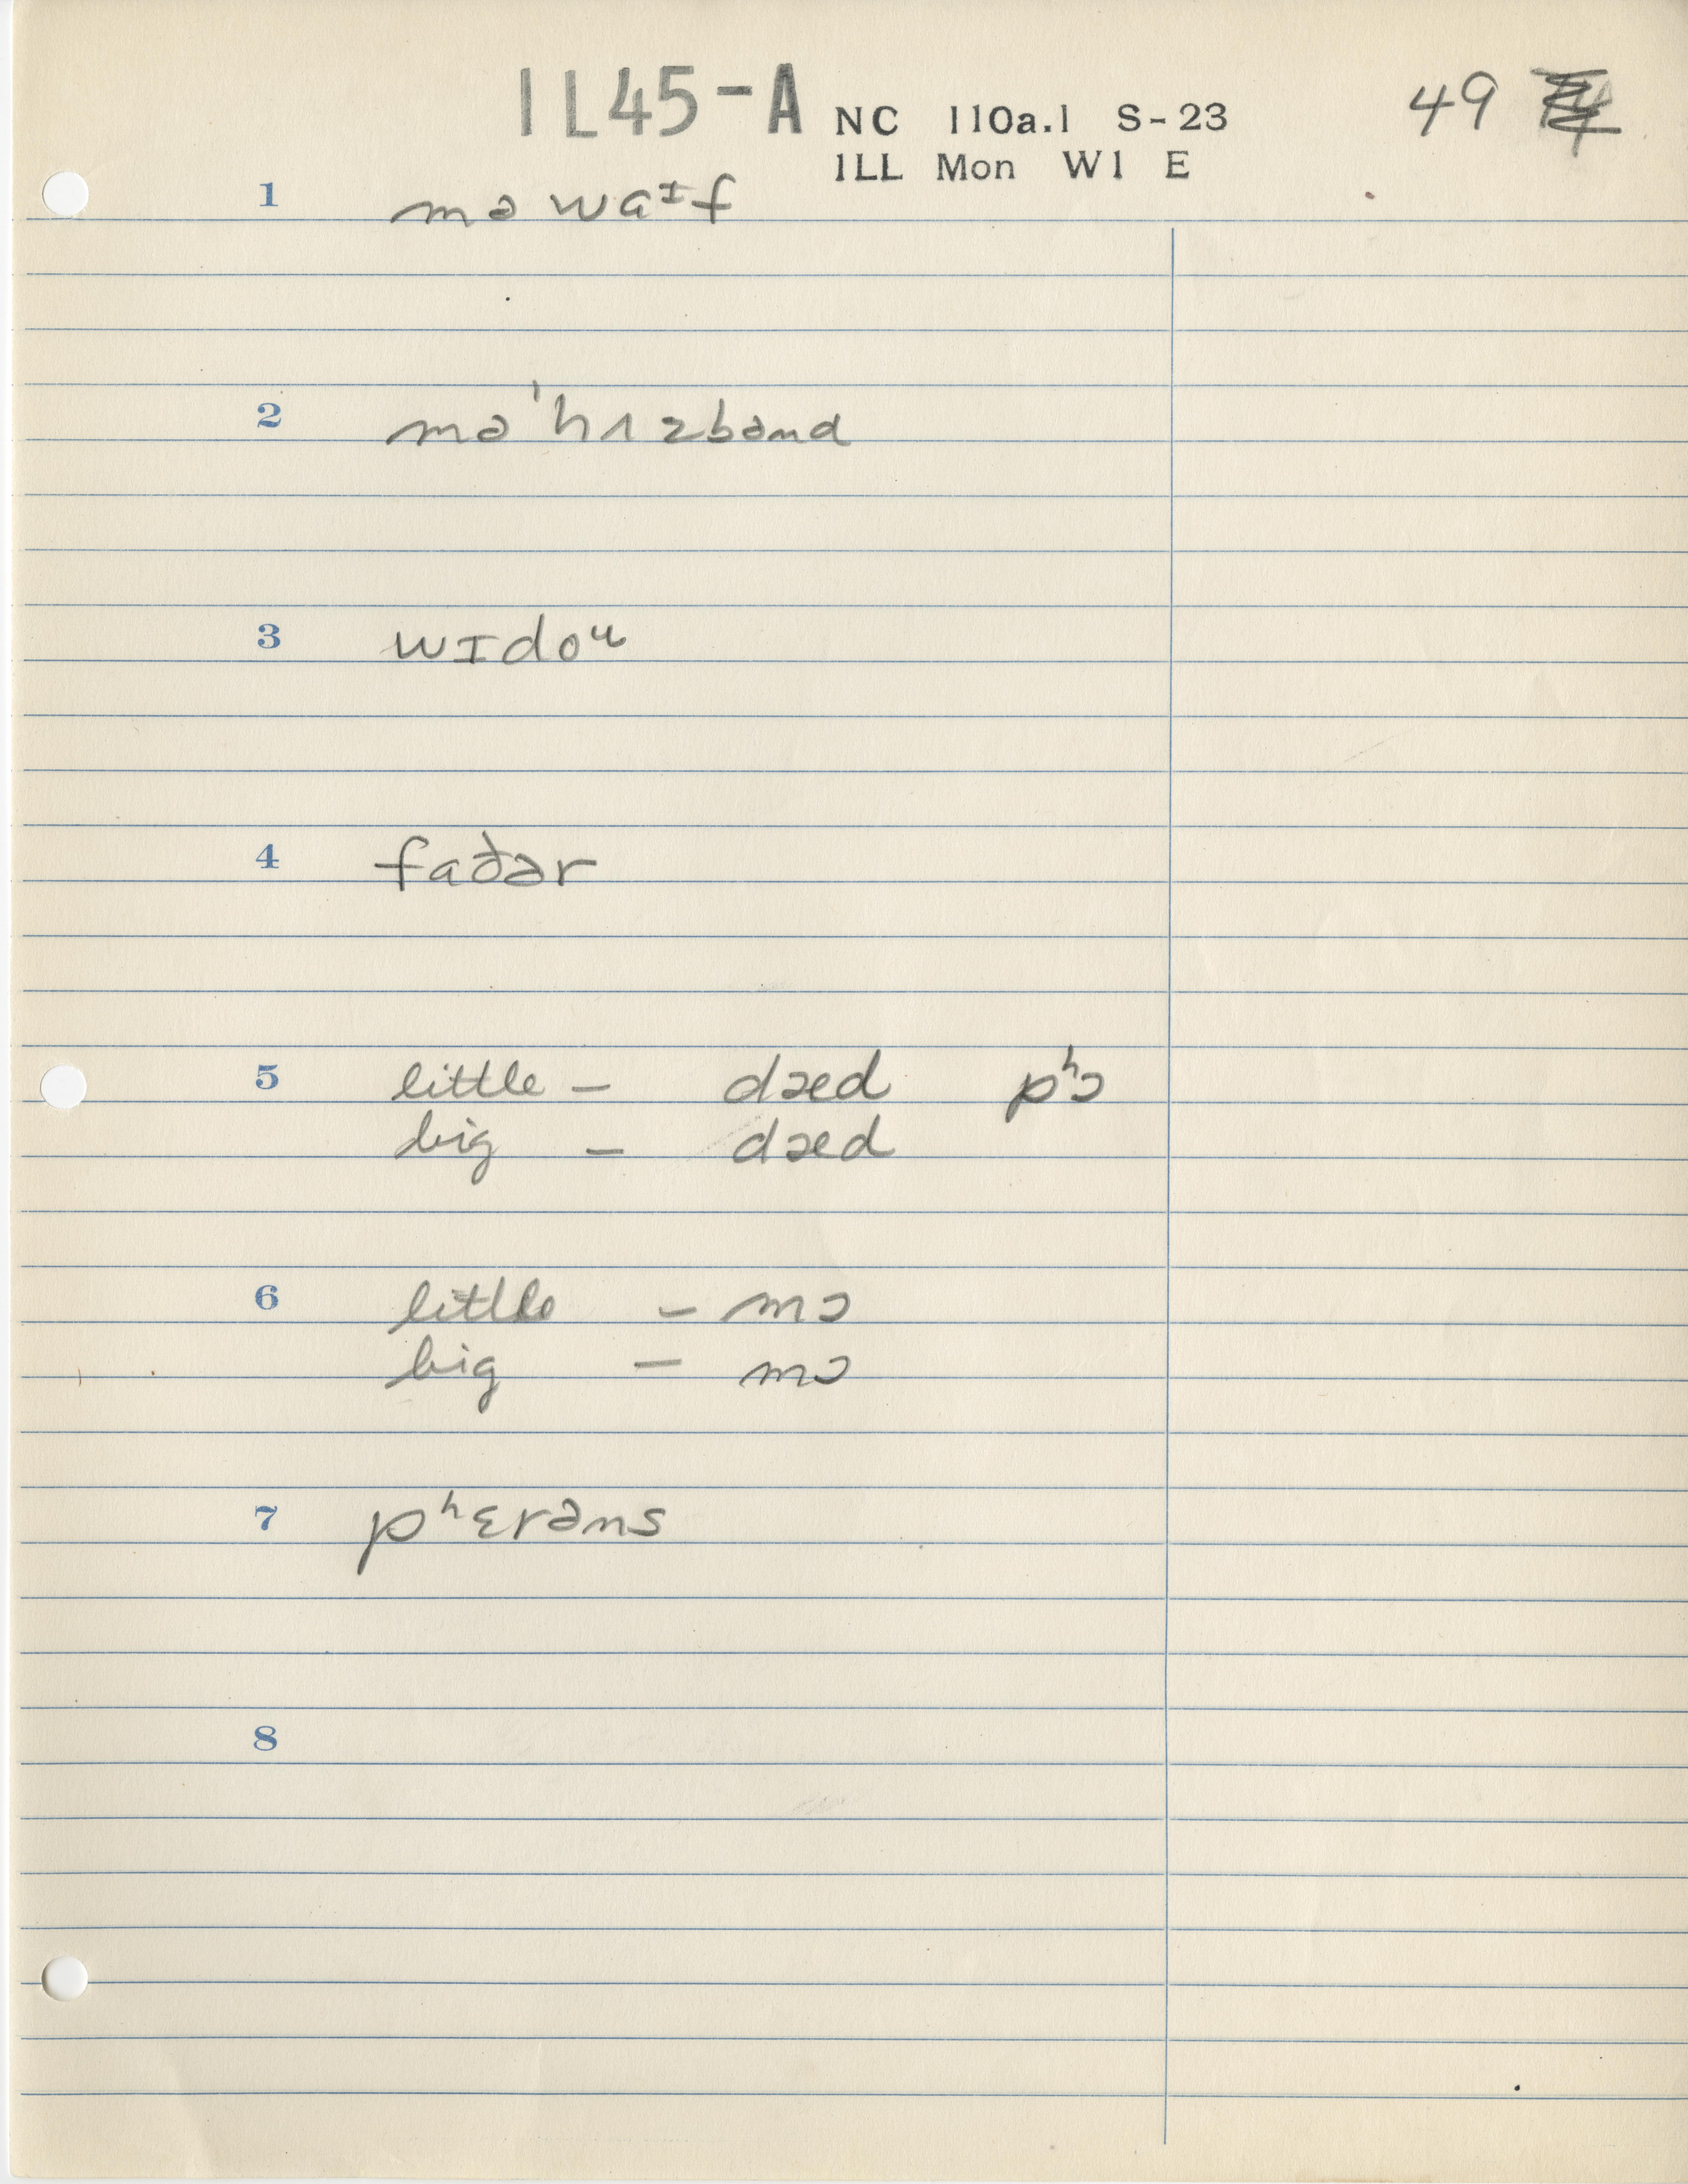 1L45-A NC 110a.1 S-23 49
ILL Mon W1 E
1 mə waᶦf
2 mə'hʌzbənd
3 wɪdoᵘ
4 faðər
5 little - dæd pʰɔ
big - dæd
6 little - mɔ
big - mɔ
7 pʰɛrəns
8